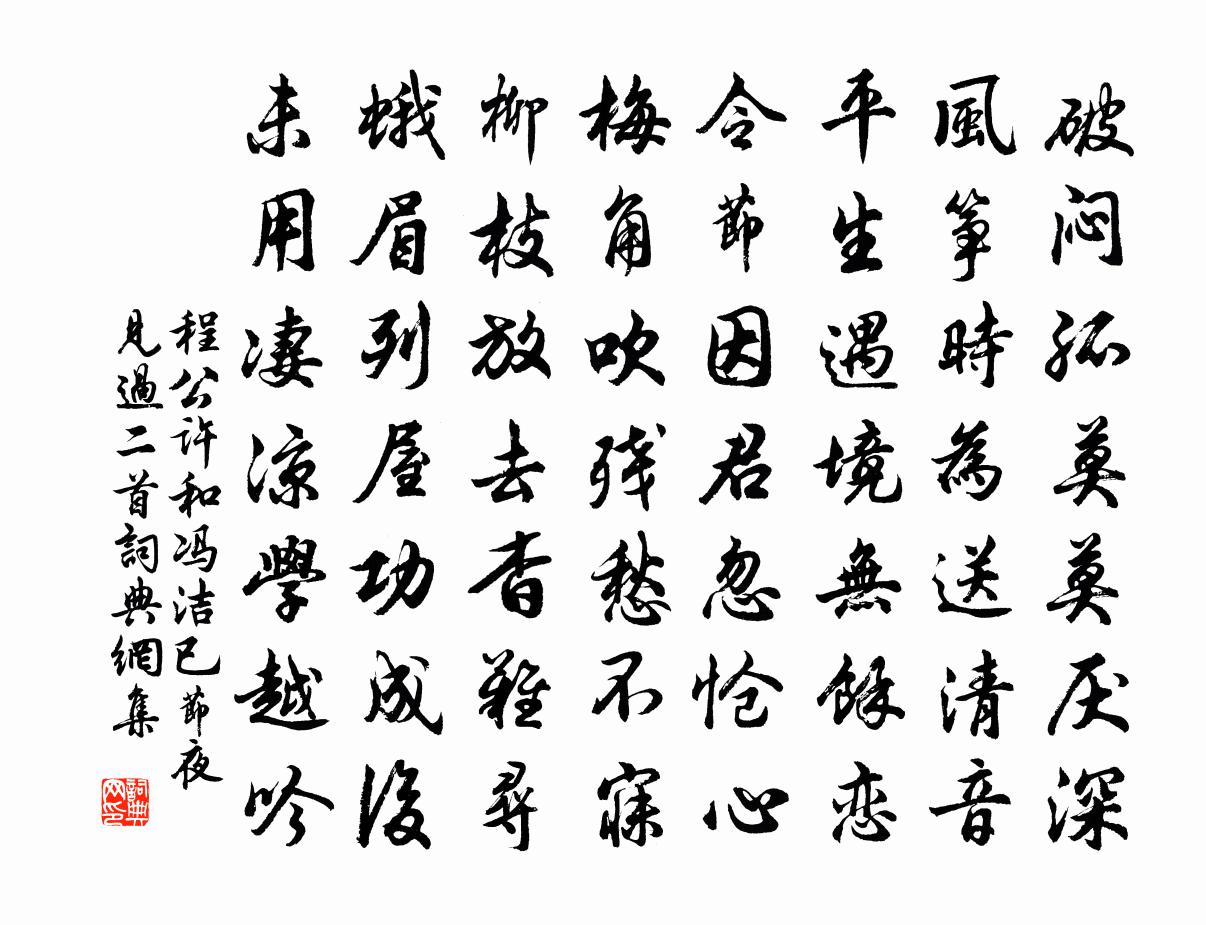 破闷孤莫莫厌深
風筝時為送清音
平生遇境無餘恋
令節因君忽怆心
梅角吹残愁不寐
柳枝放去杳難尋
蛾眉列屋功成後
未用凄涼學越吟
程公许和冯洁已節夜
見過二首詞典網集
詞典网印